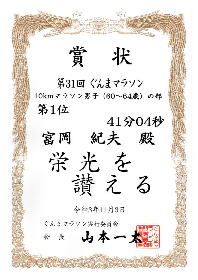 賞状
第31回 ぐんまマラソン
10kmマラソン男子（60～64歳）の部
第1位
41分04秒
富岡 紀夫 殿
栄光を
讃える
令和3年11月3日
ぐんまマラソン実行委員会
会長 山本一太